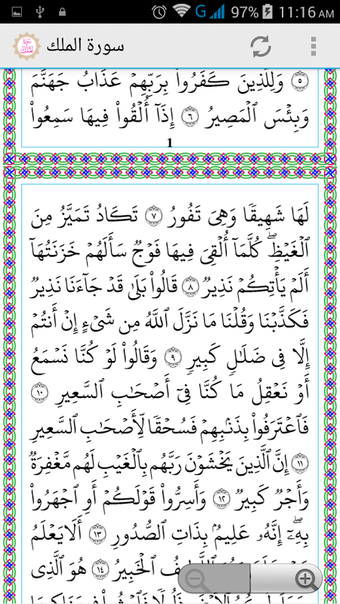 97% 11:16 AM
سورة الملك
٥ وَلِلَّذِينَ كَفَرُوا۟ بِرَبِّهِمْ عَذَابُ جَهَنَّمَ
وَبِئْسَ ٱلْمَصِيرُ ٦ إِذَآ أُلْقُوا۟ فِيهَا سَمِعُوا۟
1
لَهَا شَهِيقًا وَهِىَ تَفُورُ ٧ تَكَادُ تَمَيَّزُ مِنَ
ٱلْغَيْظِۖ كُلَّمَآ أُلْقِىَ فِيهَا فَوْجٌ سَأَلَهُمْ خَزَنَتُهَآ
أَلَمْ يَأْتِكُمْ نَذِيرٌ ٨ قَالُوا۟ بَلَىٰ قَدْ جَآءَنَا نَذِيرٌ
فَكَذَّبْنَا وَقُلْنَا مَا نَزَّلَ ٱللَّهُ مِن شَىْءٍ إِنْ أَنتُمْ
إِلَّا فِى ضَلَـٰلٍ كَبِيرٍ ٩ وَقَالُوا۟ لَوْ كُنَّا نَسْمَعُ
أَوْ نَعْقِلُ مَا كُنَّا فِىٓ أَصْحَـٰبِ ٱلسَّعِيرِ ١٠
فَٱعْتَرَفُوا۟ بِذَنۢبِهِمْ فَسُحْقًا لِّأَصْحَـٰبِ ٱلسَّعِيرِ
١١ إِنَّ ٱلَّذِينَ يَخْشَوْنَ رَبَّهُم بِٱلْغَيْبِ لَهُم مَّغْفِرَةٌ
وَأَجْرٌ كَبِيرٌ ١٢ وَأَسِرُّوا۟ قَوْلَكُمْ أَوِ ٱجْهَرُوا۟
بِهِۦٓۖ إِنَّهُۥ عَلِيمٌۢ بِذَاتِ ٱلصُّدُورِ ١٣ أَلَا يَعْلَمُ
ٱلْخَبِيرُ ١٤ هُوَ ٱلَّذِى